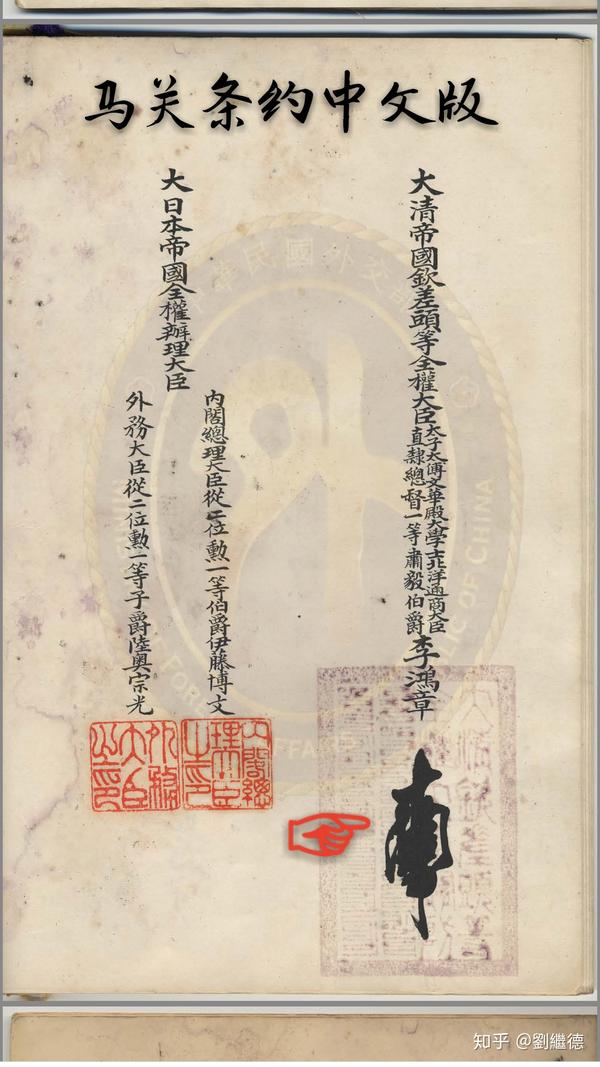 马关条约中文版
大清帝國欽差頭等全權大臣
太子太傅文華殿大學士北洋通商大臣
直隸總督一等肅毅伯爵
李鴻章
大日本帝國全權辦理大臣
內閣總理大臣從二位勳一等伯爵伊藤博文
外務大臣從二位勳一等子爵陸奧宗光
內閣總理大臣之印
外務大臣之印
中華民國外交部
OF CHINA
知乎 @劉繼德